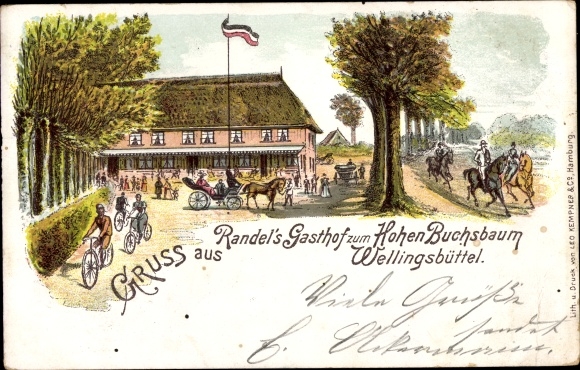 GRUSS aus
Randel's Gasthof zum Hohen Buchsbaum
Wellingsbüttel.
Viele Grüße
sendet
E. Ackermann.
Lith. u. Druck von LEO KEMPNER & Co., Hamburg.